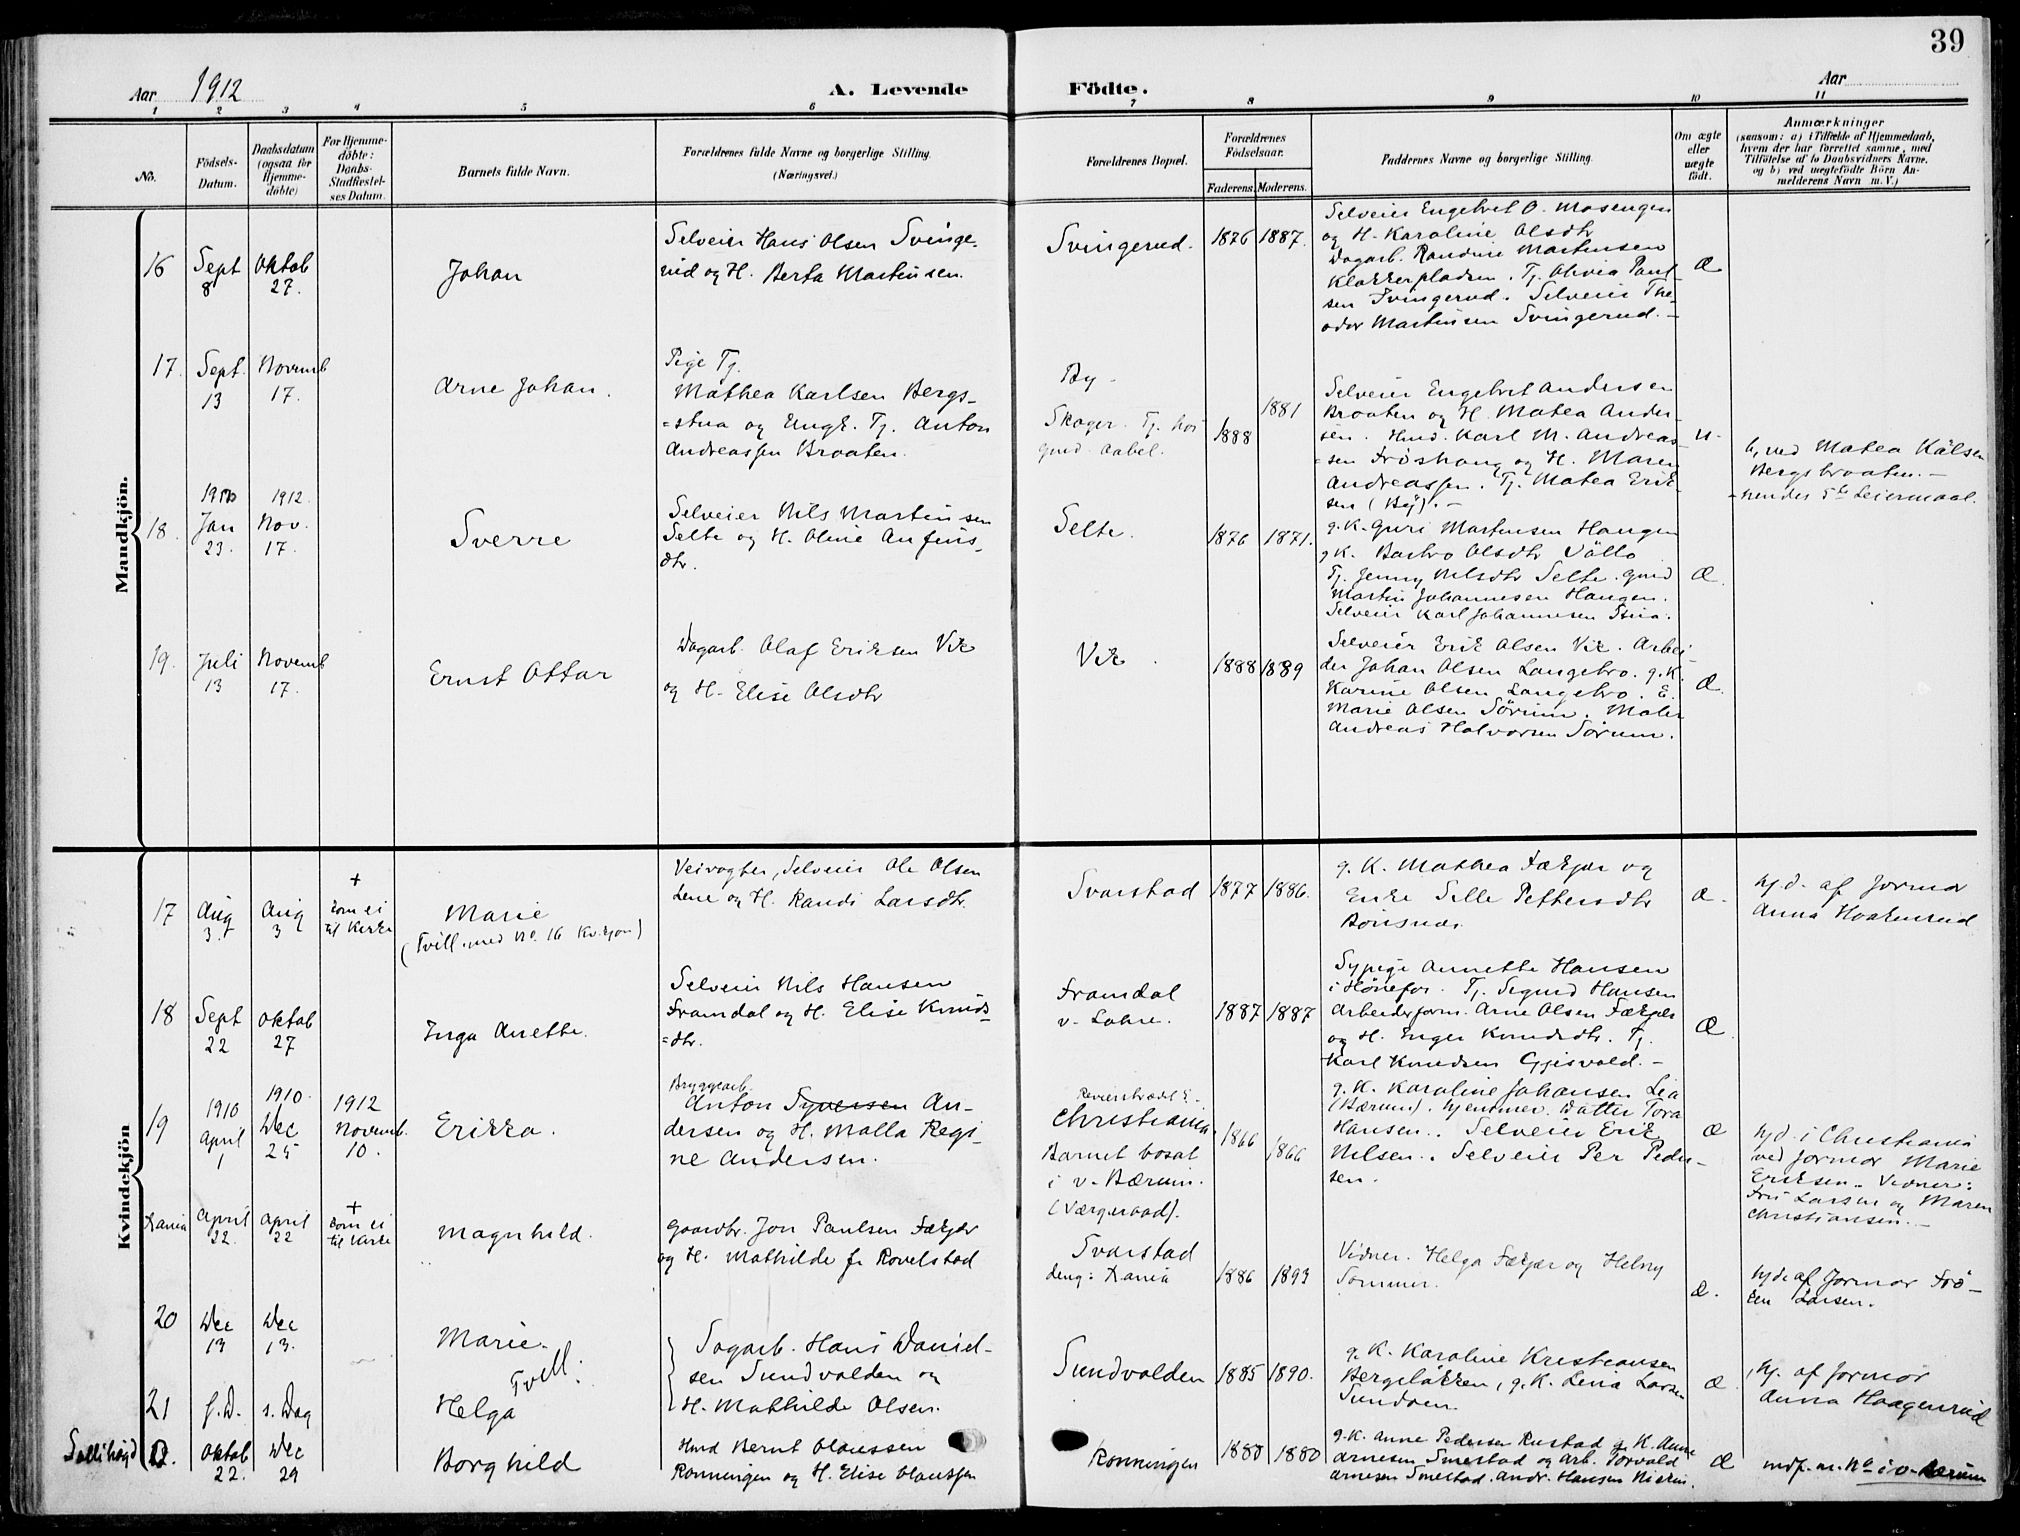 39
Aar 1912
A. Levende Födte.
Aar
1 2 3 4 5 6 7 8 9 10 11
No.
Födsels-
Datum.
Daabsdatum
(ogsaa för
Hjemme-
döbte)
For Hjemme-
döbte:
Daabs-
Stadfæstel-
ses Datum.
Barnets fulde Navn.
Forældrenes fulde Navne og borgerlige Stilling.
(Næringsvei.)
Forældrenes Bopæl.
Forældrenes
Födselsaar.
Faderens. Moderens.
Faddernes Navne og borgerlige Stilling.
Om ægte
eller
uægte
født.
Anmærkninger
(saasom: a) i Tilfælde af Hjemmedaab,
hvem der har forrettet samme, med
Tilföielse af to Daabsvidners Navne,
og b) ved uægtefödte Börn An-
melderens Navn m. V.)
Mandkjön.
16
Sept
8
Oktob
27.
Johan
Selveier Hans Olsen Svinge-
rud og H. Berta Martinsen.
Svingerud.
1876 1887.
Selveier Engebret O. Mosengen
og H. Karoline Olsdtr
Dagarb. Randine Martinsen
Klokkerpladsen. Tj. Olivia Paul-
sen Svingerud. Selveier The-
odor Martinsen Svingerud.-
Æ
17.
Sept.
13
Novemb
17.
Arne Johan.
Pige Tj.
Mathea Karlsen Bergs-
=stua og Ungk. Tj. Anton
Andreassen Braaten.
By-
Skoger. Tj. hos
gmd. Aabel.
1888
1881
Selveier Engebret Andersen
Braaten og H. Matea Ander-
sen. Hmd. Karl M. Andreas-
=sen Fröshaug og H. Maren
Andreassen. Tj. Matea Erik-
sen (By).-
u.
b, ved Matea Kalsen
Bergsbraaten.-
-hendes 5te Leiermaal.
18.
Jan
23.
1912.
Nov.
17.
Sverre
Selveier Nils Martinsen
Selte og H. Oline Anfins-
dtr.
Selte.
1876 1871.
g.K. Guri Martinsen Haugen
gK. Barbro Olsdtr
Tj. Jenny Nilsdtr Selte. Gmd
Martin Johannesen Haugen.
Selveier Karl Johannesen
Æ.
19.
Juli
13
Novemb
17.
Ernst Ottar
Dagarb. Olaf Eriksen Vik
og H. Elise Olsdtr
Vik.
1888 1889
Selveier Erik Olsen Vik. Arbei-
der Johan Olsen Langebro. g.K.
Karine Olsen Langebro. E.
Marie Olsen Sörum. Maler
Andreas Halvorsen Sörum.
Æ.
Kvindekjön
17
Aug
3.
Aug
3
+
kom ei
til Kirke
Marie
(Tvill. med No. 16 Kv.kjøn)
Veivogter, Selveier Ole Olsen
Lene og H. Randi Larsdtr
Svarstad
1877 1886.
g.K. Mathea Fækjær og
Enke Sille Pettersdtr
Bönsnæs
Æ.
hj.d. af Jormor
Anna Haakenrud
18
Sept
22
Oktob
27
Inga Anette.
Selveier Nils Hansen
Framdal og H. Elise Knuds-
=dtr.
Framdal
v. Lohre.
1887 1887
Sypige Annette Hansen
i Hönefos. Tj. Sigurd Hansen
Arbeiderform. Arne Olsen Fækjær
og H. Inger Knudsdtr. Tj.
Karl Knudsen Gjesvold.-
Æ.
19
1910
April
1
1910.
Dec
25
1912
Novemb.
10.
Erikka.
Bryggearb.
Anton Syversen An-
dersen og H. Malla Regi-
ne Andersen.
Christiania.
Barnet bosat
i v. Bærum.
(Værgeraad).
1866 1866
g.K. Karoline Johansen Lia
(Bærum). hjemmev. Datter Tora
Hansen.. Selveier Erik
Nilsen.. Selveier Per Peder-
sen.
Æ
hjd. i Christiania
ved Jormor Marie
Eriksen. Vidner:
Fru Larsen og Maren
Christiansen.-
Krania
April
22.
April
22
+
kom ei
til Kirke
Magnhild.
Gaardbr. Jon Paulsen Fækjær
og H. Mathilde f. Rovelstad
Svarstad
deng: Krania
1886 1893
Vidner. Helga Fækjær og Helny
Sommer.
Æ.
hjd af Jormor Frö-
ken Larsen.
20
Dec
13
Dec
13.
Marie.
Tvill:
Sagarb. Hans Daniel-
sen Sundvolden og
H. Mathilde Olsen.
Sundvolden
1885 1890.
g.K. Karoline Kristiansen
Bergelökken, g.K. Lina Larsen
Sundöen.
Æ.
hj. af Jormor
Anna Haagenrud
21
s.D.
s. Dag
Helga
Sollihögd
Oktob
22.
Dec
29
Borghild
Hmd Bernt Olaussen
Rønningen og H. Elise Olaussen
Rønningen
1880 1880
g.K. Anne Pedersen Rustad g.K. Anne
Arnesen Smestad og Arb. Torvald
Arnesen Smestad. Andr. Hansen
Æ
indf. m. No i v. Bærum